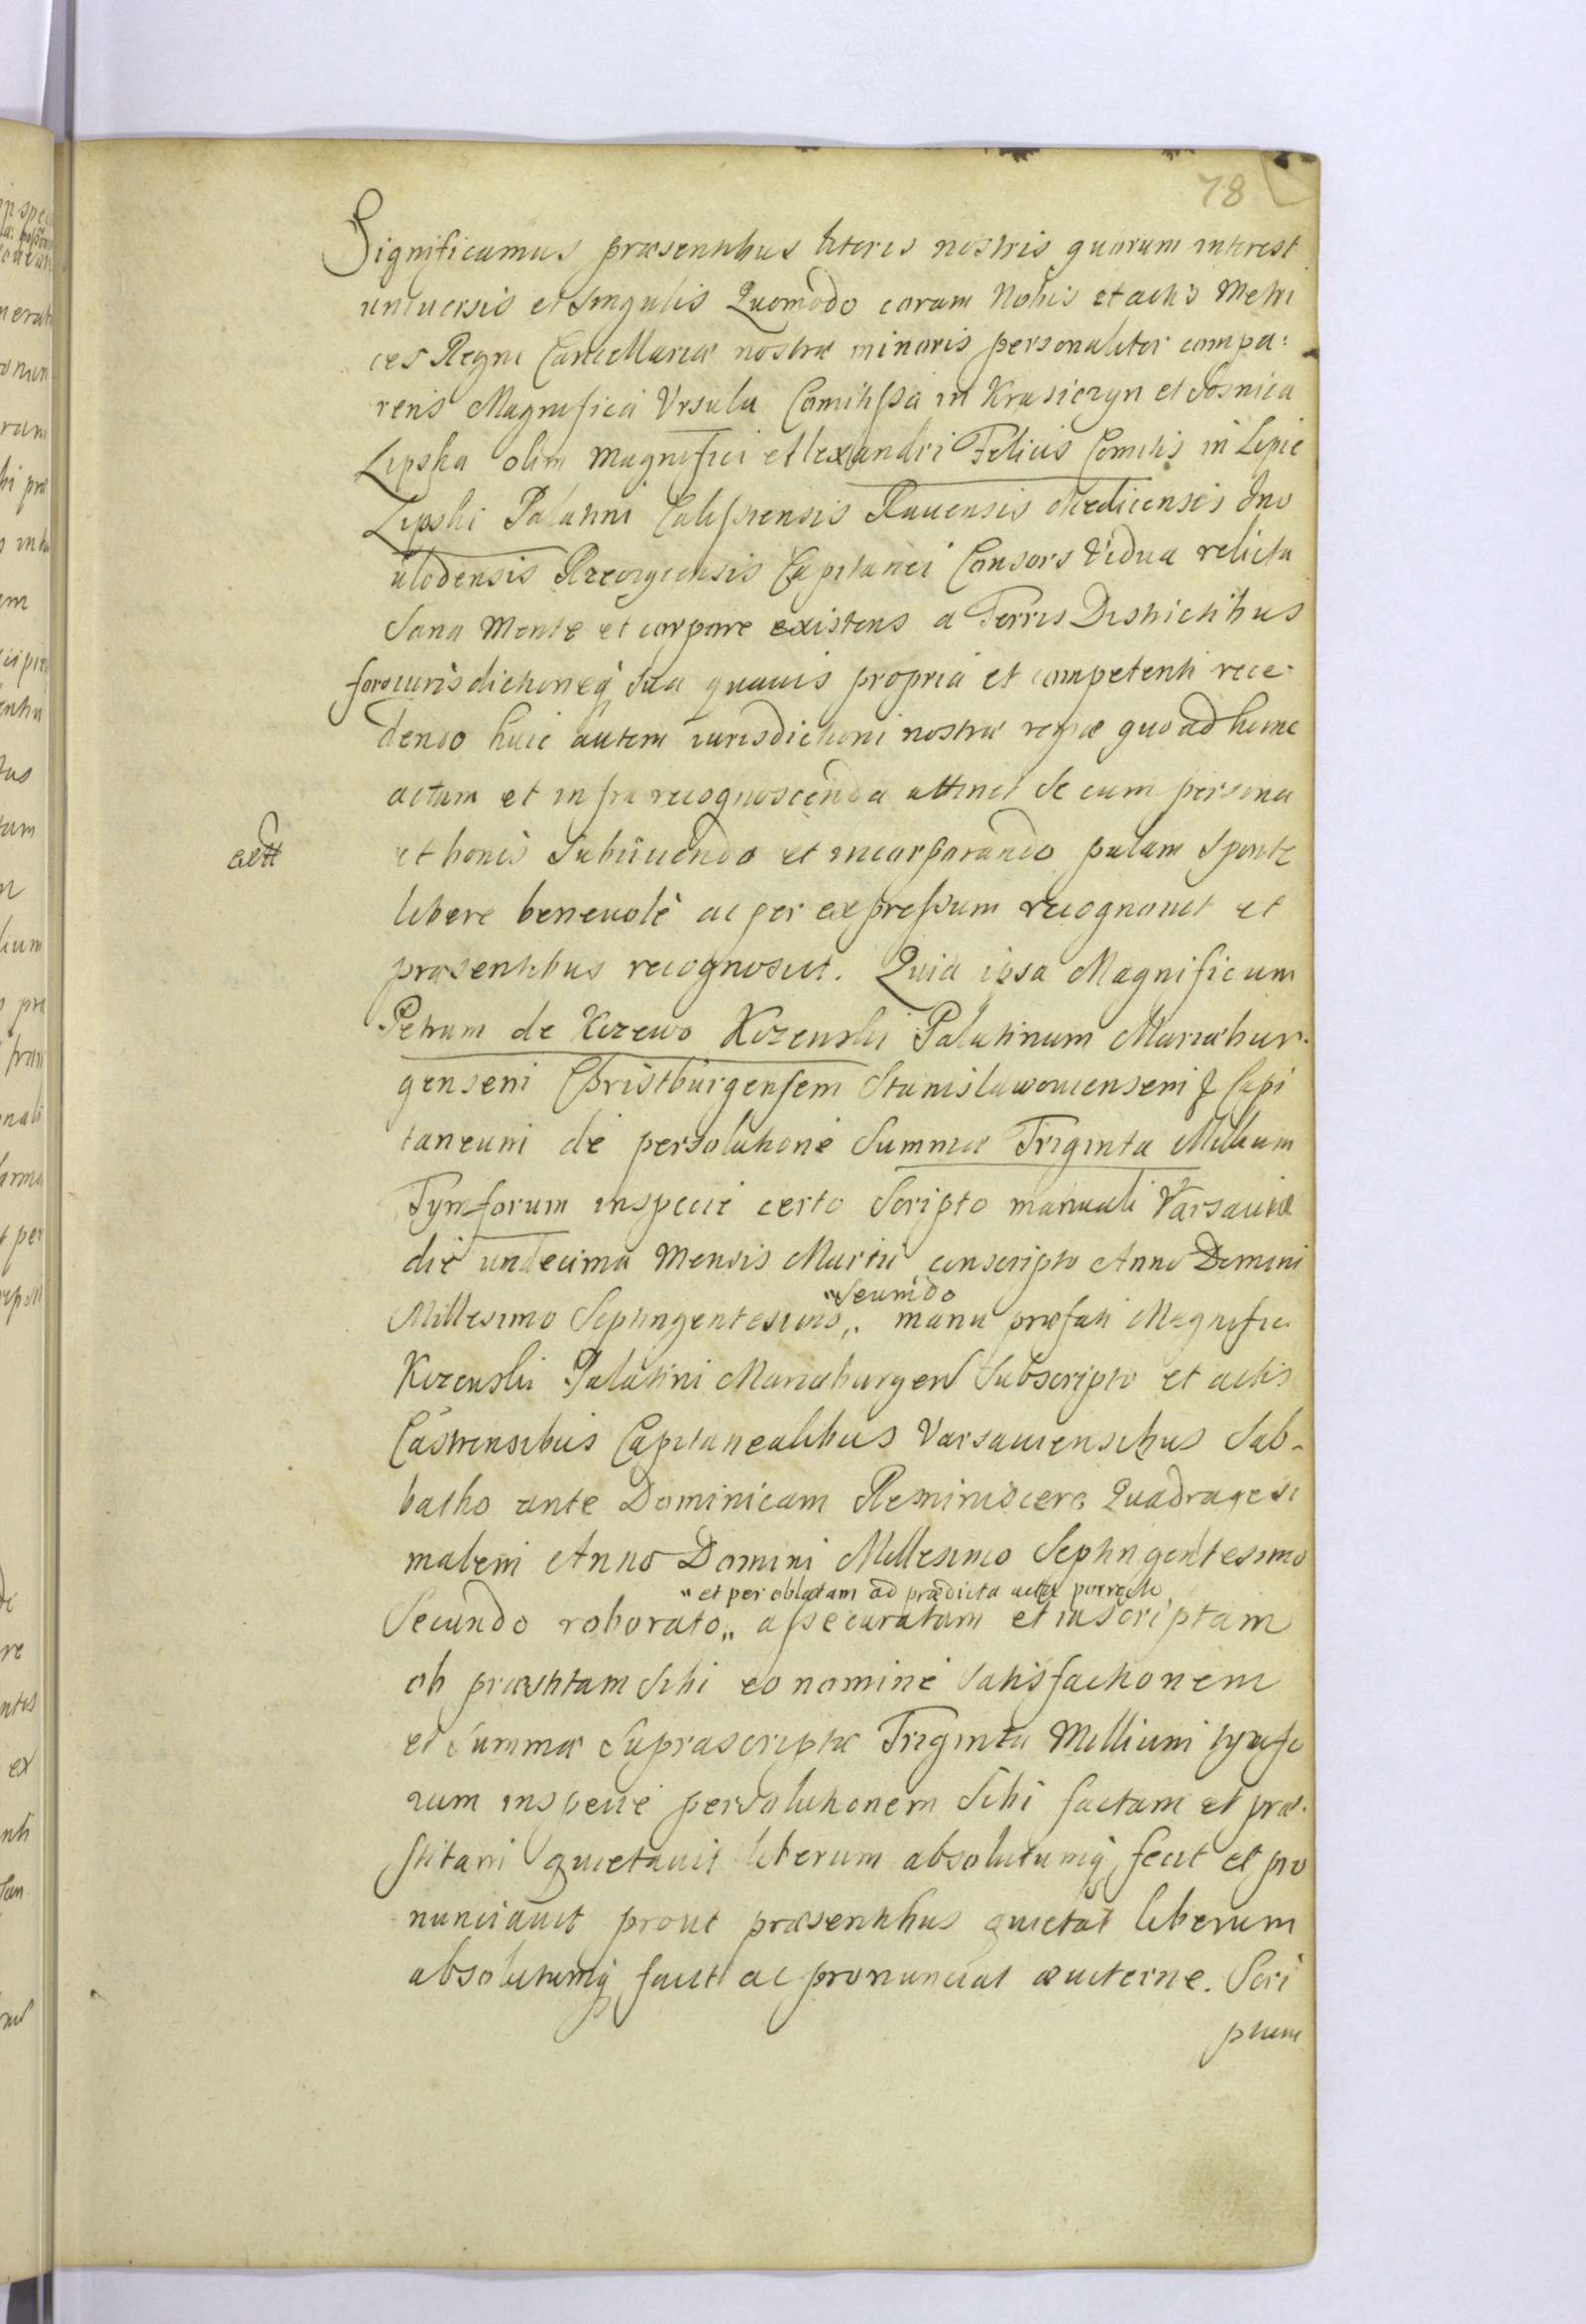 78
Significamus præsentibus literis nostris quorum interest
uniuersis et singulis Quomodo coram Nobis et actis Metri
ces Regni Cancellariæ nostræ minoris personaliter compa:
rens Magnifica Vrsula Comitissa in Krasiczyn et Sosnica
Lipska olim Magnifici Alexandri Felicis Comitis in Lipie
Lipski Palatini Calissiensis Rauensis Medicensis Ino
ulodensis Rzeczycensis Capitanei Consors Vidua relicta
Sana Mente et corpore existens a Terris Districtibus
foro iurisdictioneq́ sua quauis propria et competenti rece:
dendo huic autem iurisdictioni nostræ regiæ quo ad hunc
actum et infra recognoscenda attinet Se cum persona
et bonis Subijciendo et incorporando palam Sponte
libere beneuolè ac per expressum recognouit et
præsentibus recognoscit. Quia ipsa Magnificum
Petrum de Kczewo Kczewski Palatinum Mariæbur-
gensem Christburgensem Stanislawouiensem & Capi
taneum de persolutione Summæ Triginta Millium
Tymforum in specie certo Scripto manuali Varsauiæ
die undecima Mensis Martii conscripto Anno Domini
„Secundo
Millesimo Septingentesimo „ manu præfati Magnifici
Kczewski Palatini Mariæburgen Subscripto et actis
Castrensibus Capitanealibus Varsauiensibus Sab-
batho ante Dominicam Reminiscere Quadragesi
malem Anno Domini Millesimo Septingentesimo
„ et per oblatam ad prædicta acta porrecto
Secundo roborato „ assecuratam et inscriptam
ob præstitam Sibi eo nomine Satisfactionem
et Summæ Suprascriptæ Triginta Millium tymfo
rum in specie persolutionem Sibi factam et præ:
stitam quietauit liberum absolutumq́ fecit et pro
nunciauit prout præsentibus quietat liberum
absolutumq́ facit ac pronunciat æuiterne. Scri
ptum